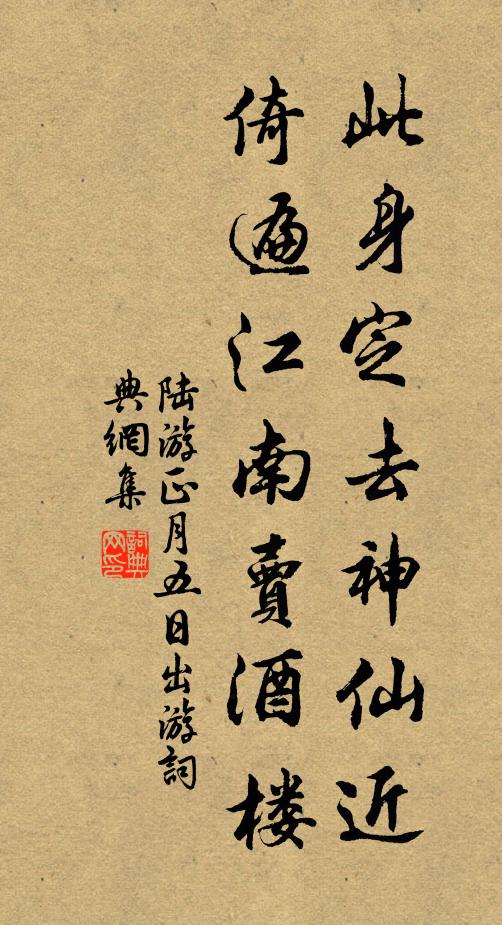 此身定去神仙近
倚遍江南賣酒楼
陆游正月五日出游詞
典網集
詞典
网印